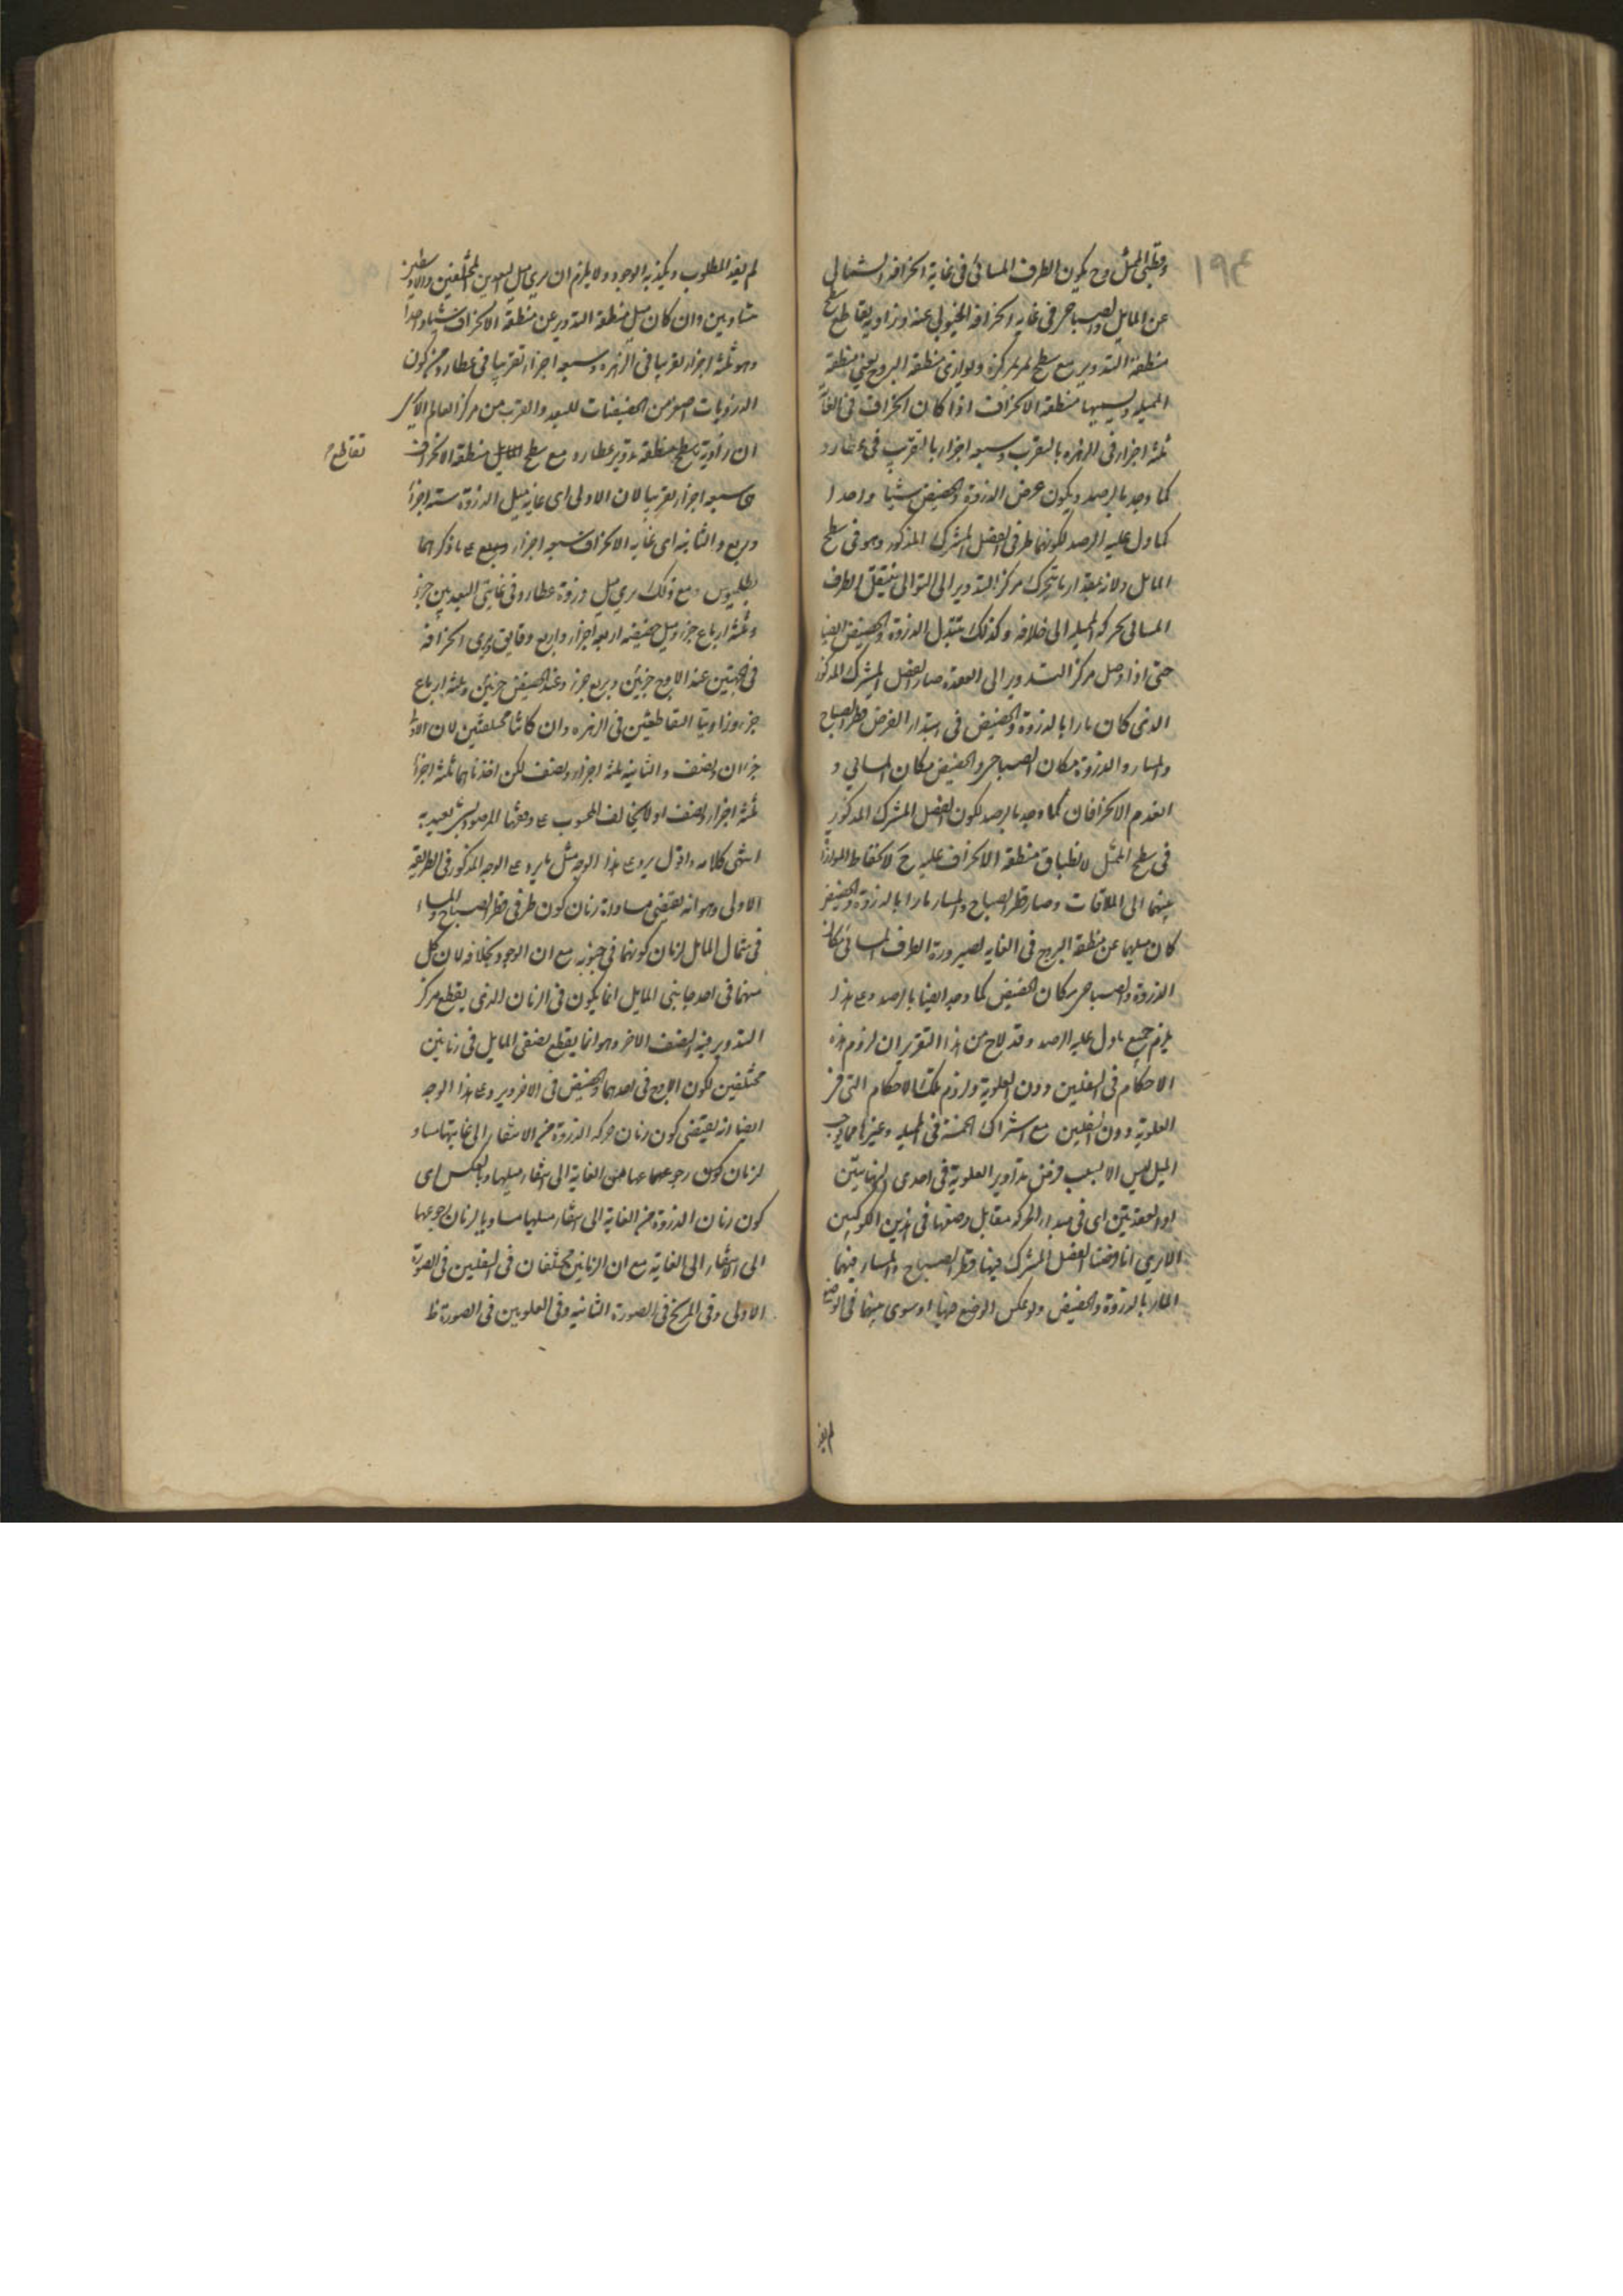 ١٩٤
وقطبي الممثل وح يكون الطرف المسائي في غاية انحرافه الشمالي
عن المايل والصباحي في غاية انحرافه الجنوبي عنه وزاوية تقاطع سطح
منطقة التدوير مع سطح يمر بمركزه ويوازي منطقة البروج يعني منطقة
المميله ويسميها منطقة الانحراف اذا كان انحراف في الغاية
ثلثة اجزاء في الزهره بالتقريب وسبعه اجزاء بالتقريب في عطارد
كما وجد بالرصد ويكون عرض الذروة والحضيض شيئا واحدا
كما دل عليه الرصد لكونهما طرفي الفصل المشترك المذكور وهو في سطح
المايل ولان بمقدار ما يتحرك مركز التدوير الى التوالي ينتقل الطرف
المسائي بحركة المميله الى خلافه وكذلك يتبدل الذروة والحضيض ايضا
حتى اذا وصل مركز التدوير الى العقدة صار الفصل المشترك المذكور
الذي كان مارا بالذروة والحضيض في ابتداء الفرض قطر الصباح
والمساء والذروة مكان الصباحي والحضيض مكان المسائي و
انعدم الانحرافان كما وجد بالرصد لكون الفصل المشترك المذكور
في سطح الممثل لانطباق منطقة الانحراف عليه ح لانحفاظ الموازاة
بينهما الى الملاقات وصار قطر الصباح والمساء مارا بالذروة والحضيض
كان ميلهما عن منطقة البروج في الغايه لصيرورة الطرف المسائي مكان
الذروة والصباحي مكان الحضيض كما وجد ايضا بالرصد وعلى هذا
يلزم جميع ما دل عليه الرصد وقد لاح من هذا التقرير ان لزوم هذه
الاحكام في السفليين دون العلوية ولزوم تلك الاحكام التي في
العلوية دون السفليين مع اشتراك الخمسة في المميله وغيرها مما يوجب
الميل ليس الا بسبب فرض تداوير العلوية في احدى النهايتين
او العقدتين اي في مبدأ الحركه مقابل وضعها في هذين الكوكبين
الا يرى انا وضعنا الفصل المشترك فيها قطر الصباح والمساء وفيهما
المار بالذروة والحضيض ولو عكس الوضع فيها او سوى بينهما في الوضع
لم يفد
لم يفد المطلوب ويكذبه الوجود ولا يلزم ان يرى ميل البعدين المختلفين والاوسطين
متساويين وان كان ميل منطقة التدوير عن منطقة الانحراف شيئا واحدا
وهو ثلثة اجزاء تقريبا في الزهره وسبعه اجزاء تقريبا في عطارد من كون
الذرويات اصغر من الحضيضيات للبعد والقرب من مركز العالم لا يرى
ان زاوية سطح منطقة تدوير عطارد مع سطح المايل منطقة الانحراف
تقاطع
سبعه اجزاء تقريبا لان الاولى اي غاية ميل الذروة ستة اجزاء
وربع والثانيه اي غاية الانحراف سبعه اجزاء وربع على ما ذكرهما
بطلميوس ومع ذلك يرى ميل ذروة عطارد في غايتي البعدين جزء
وثلثة ارباع جزء وميل حضيضه اربعه اجزاء واربع دقايق ويرى انحرافه
في الجهتين عند الاوج جزئين وربع جزء وعند الحضيض جزئين وثلثة ارباع
جزء وزاويتا التقاطعين في الزهره وان كانتا مختلفتين لان الاولى
جزءان ونصف والثانيه ثلثة اجزاء ونصف لكن اخذناهما ثلثة اجزاء
ثلثة اجزاء ونصف اذ لا يخالف المحسوب على وفقها المرصود بشيء يعتد به
انتهى كلامه واقول يرد على هذا الوجه مثل ما يرد على الوجه المذكور في الطريقة
الاولى وهو انه يقتضي مساواة زمان كون طرفي قطر الصباح والمساء
في شمال المايل لزمان كونهما في جنوبه مع ان الوجود بخلافه لان كل
منهما في احد جانبي المايل انما يكون في الزمان الذي يقطع مركز
التدوير فيه النصف الاخر وهو انما يقطع نصفي المايل في زمانين
مختلفين لكون الاوج في احدهما والحضيض في الاخر ويرد على هذا الوجه
ايضا انه يقتضي كون زمان حركة الذروة من الانتفاء الى غايتها مساو
لزمان كون رجوعهما عنها من الغاية الى انتفاء ميلها وبالعكس اي
كون زمان الذروة من الغاية الى انتفاء ميلها مساويا لزمان رجوعها
الى الانتفاء الى الغاية مع ان الزمانين مختلفان في السفليين في الصورة
الاولى وفي المريخ في الصورة الثانيه وفي العلويين في الصورة